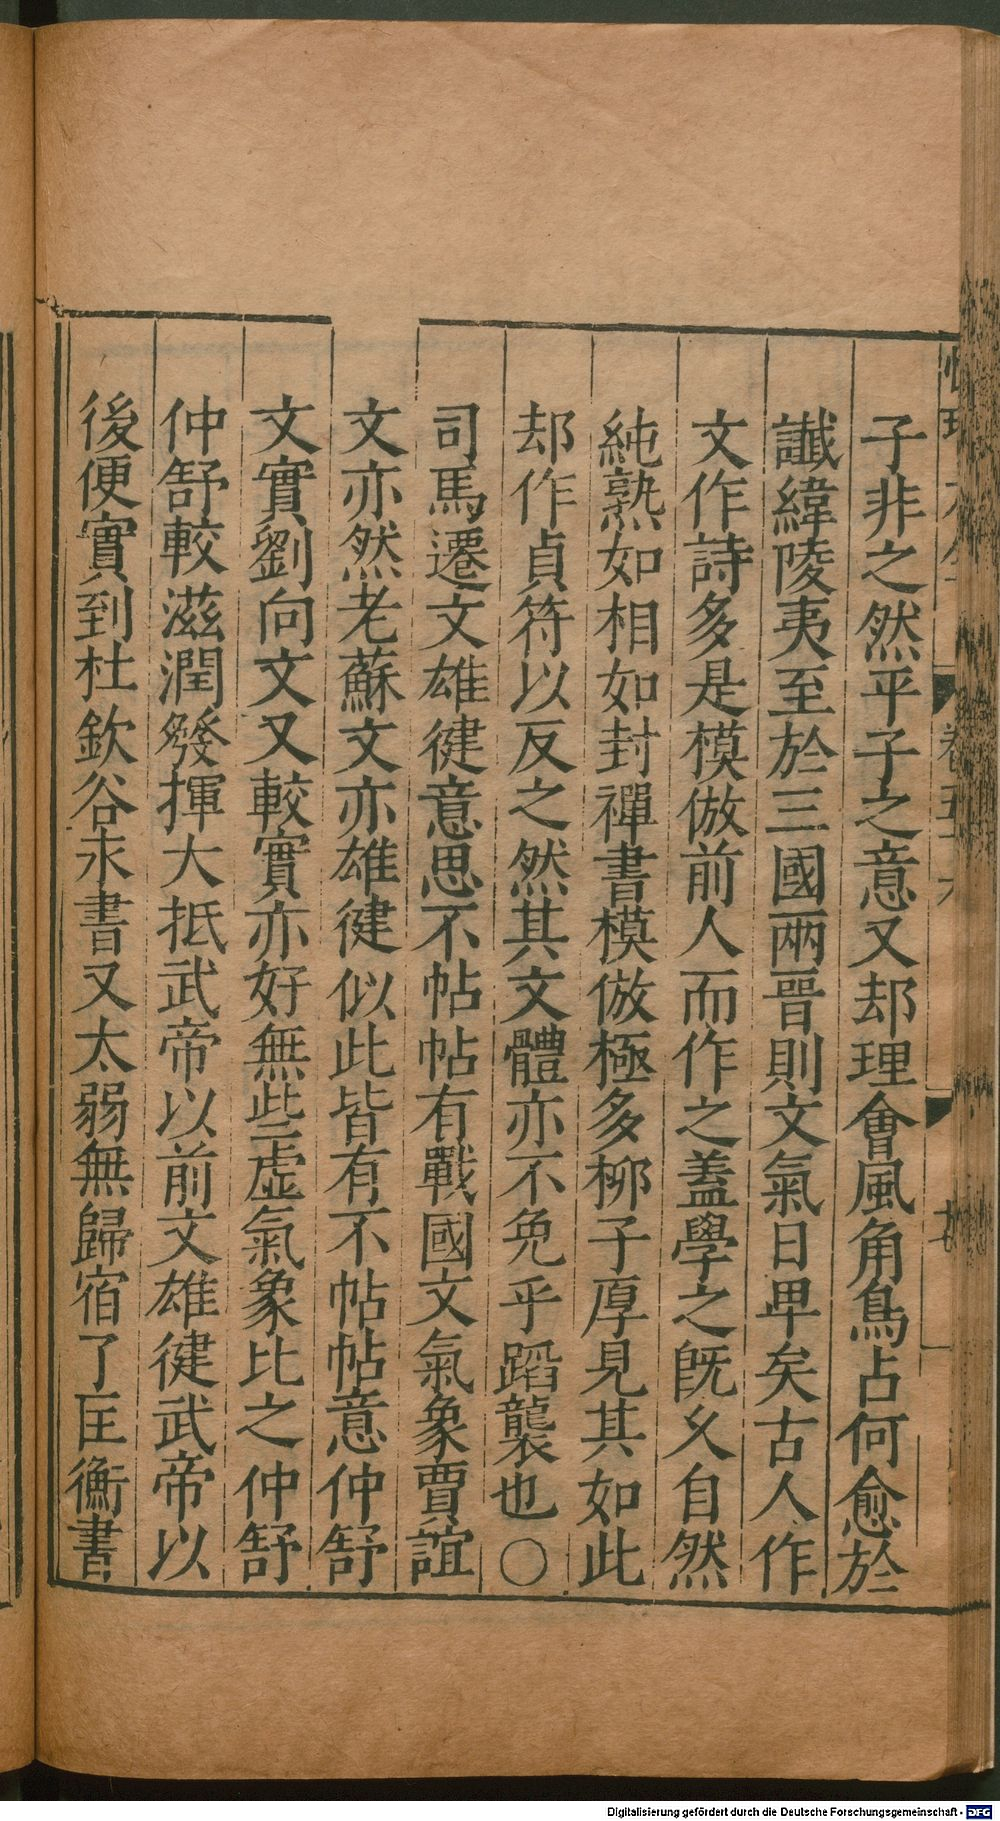 子非之然平子之意又却理會風角鳥占何愈於
讖緯陵夷至於三國兩晉則文氣日卑矣古人作
文作詩多是模倣前人而作之蓋學之旣久自然
純熟如相如封禪書模倣極多柳子厚見其如此
却作貞符以反之然其文體亦不免乎蹈襲也〇
司馬遷文雄健意思不帖帖有戰國文氣象賈誼
文亦然老蘇文亦雄健似此皆有不帖帖意仲舒
文實劉向文又較實亦好無些虛氣象比之仲舒
仲舒較滋潤發揮大抵武帝以前文雄健武帝以
後便實到杜欽谷永書又太弱無歸宿了匡衡書
Digitalisierung gefördert durch die Deutsche Forschungsgemeinschaft - DFG